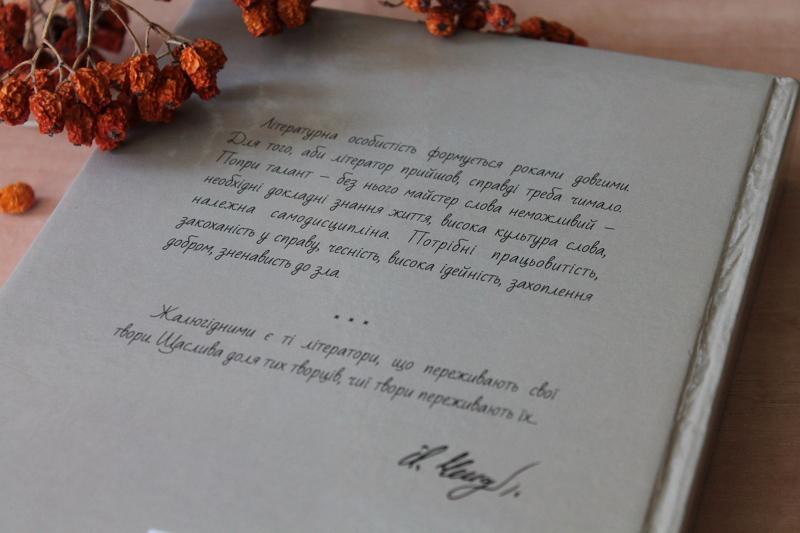 Літературна особистість формується роками довгими.
Для того, аби літератор прийшов, справді треба чимало.
Попри талант – без нього майстер слова неможливий –
необхідні докладні знання життя, висока культура слова,
належна самодисципліна. Потрібні працьовитість,
закоханість у справу, чесність, висока ідейність, захоплення
добром, зненависть до зла.
...
Жалюгідними є ті літератори, що переживають свої
твори. Щаслива доля тих творців, чиї твори переживають їх.